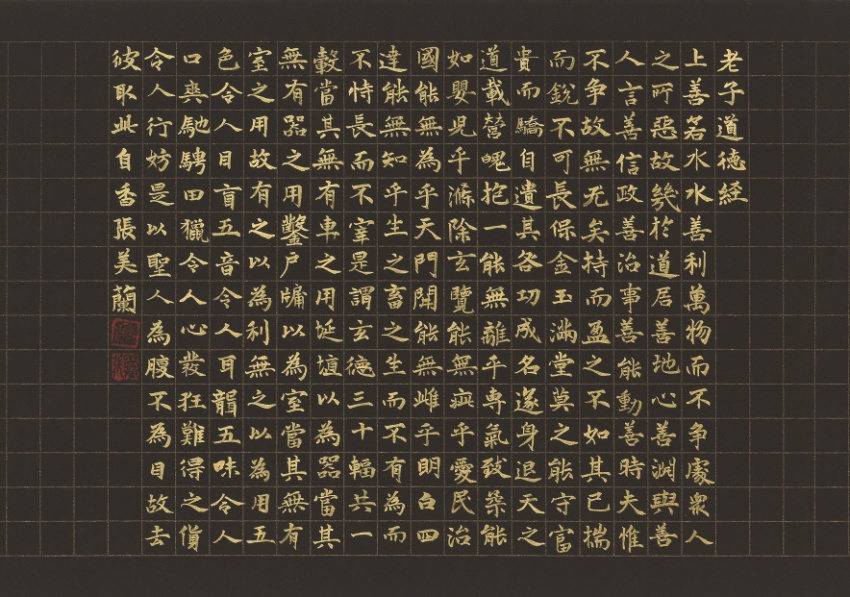 老子道徳経
上善若水水善利萬物而不争處衆人
之所惡故幾於道居善地心善淵與善
人言善信政善治事善能動善時夫惟
不争故無尤矣持而盈之不如其已揣
而銳不可長保金玉滿堂莫之能守富
貴而驕自遺其各功成名遂身退天之
道載營魄抱一能無離乎專氣致柔能
如嬰兒乎滌除玄覽能無疵乎愛民治
國能無為乎天門開能無雌乎明白四
達能無知乎生之畜之生而不有為而
不恃長而不宰是謂玄徳三十輻共一
轂當其無有車之用埏埴以為器當其
無有器之用鑿戶牖以為室當其無有
室之用故有之以為利無之以為用五
色令人目盲五音令人耳聾五味令人
口爽馳騁田獵令人心發狂難得之貨
令人行妨是以聖人為腹不為目故去
彼取此自香張美蘭